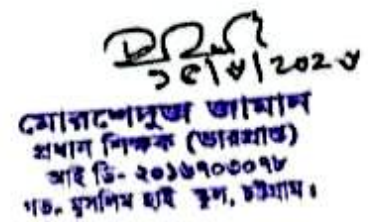 মোরশেদুজ্জামান
প্রধান শিক্ষক (ভারপ্রাপ্ত)
আই ডি- ২০১৬৭০৩০৭৮
গভ. মুসলিম হাই স্কুল, চট্টগ্রাম।